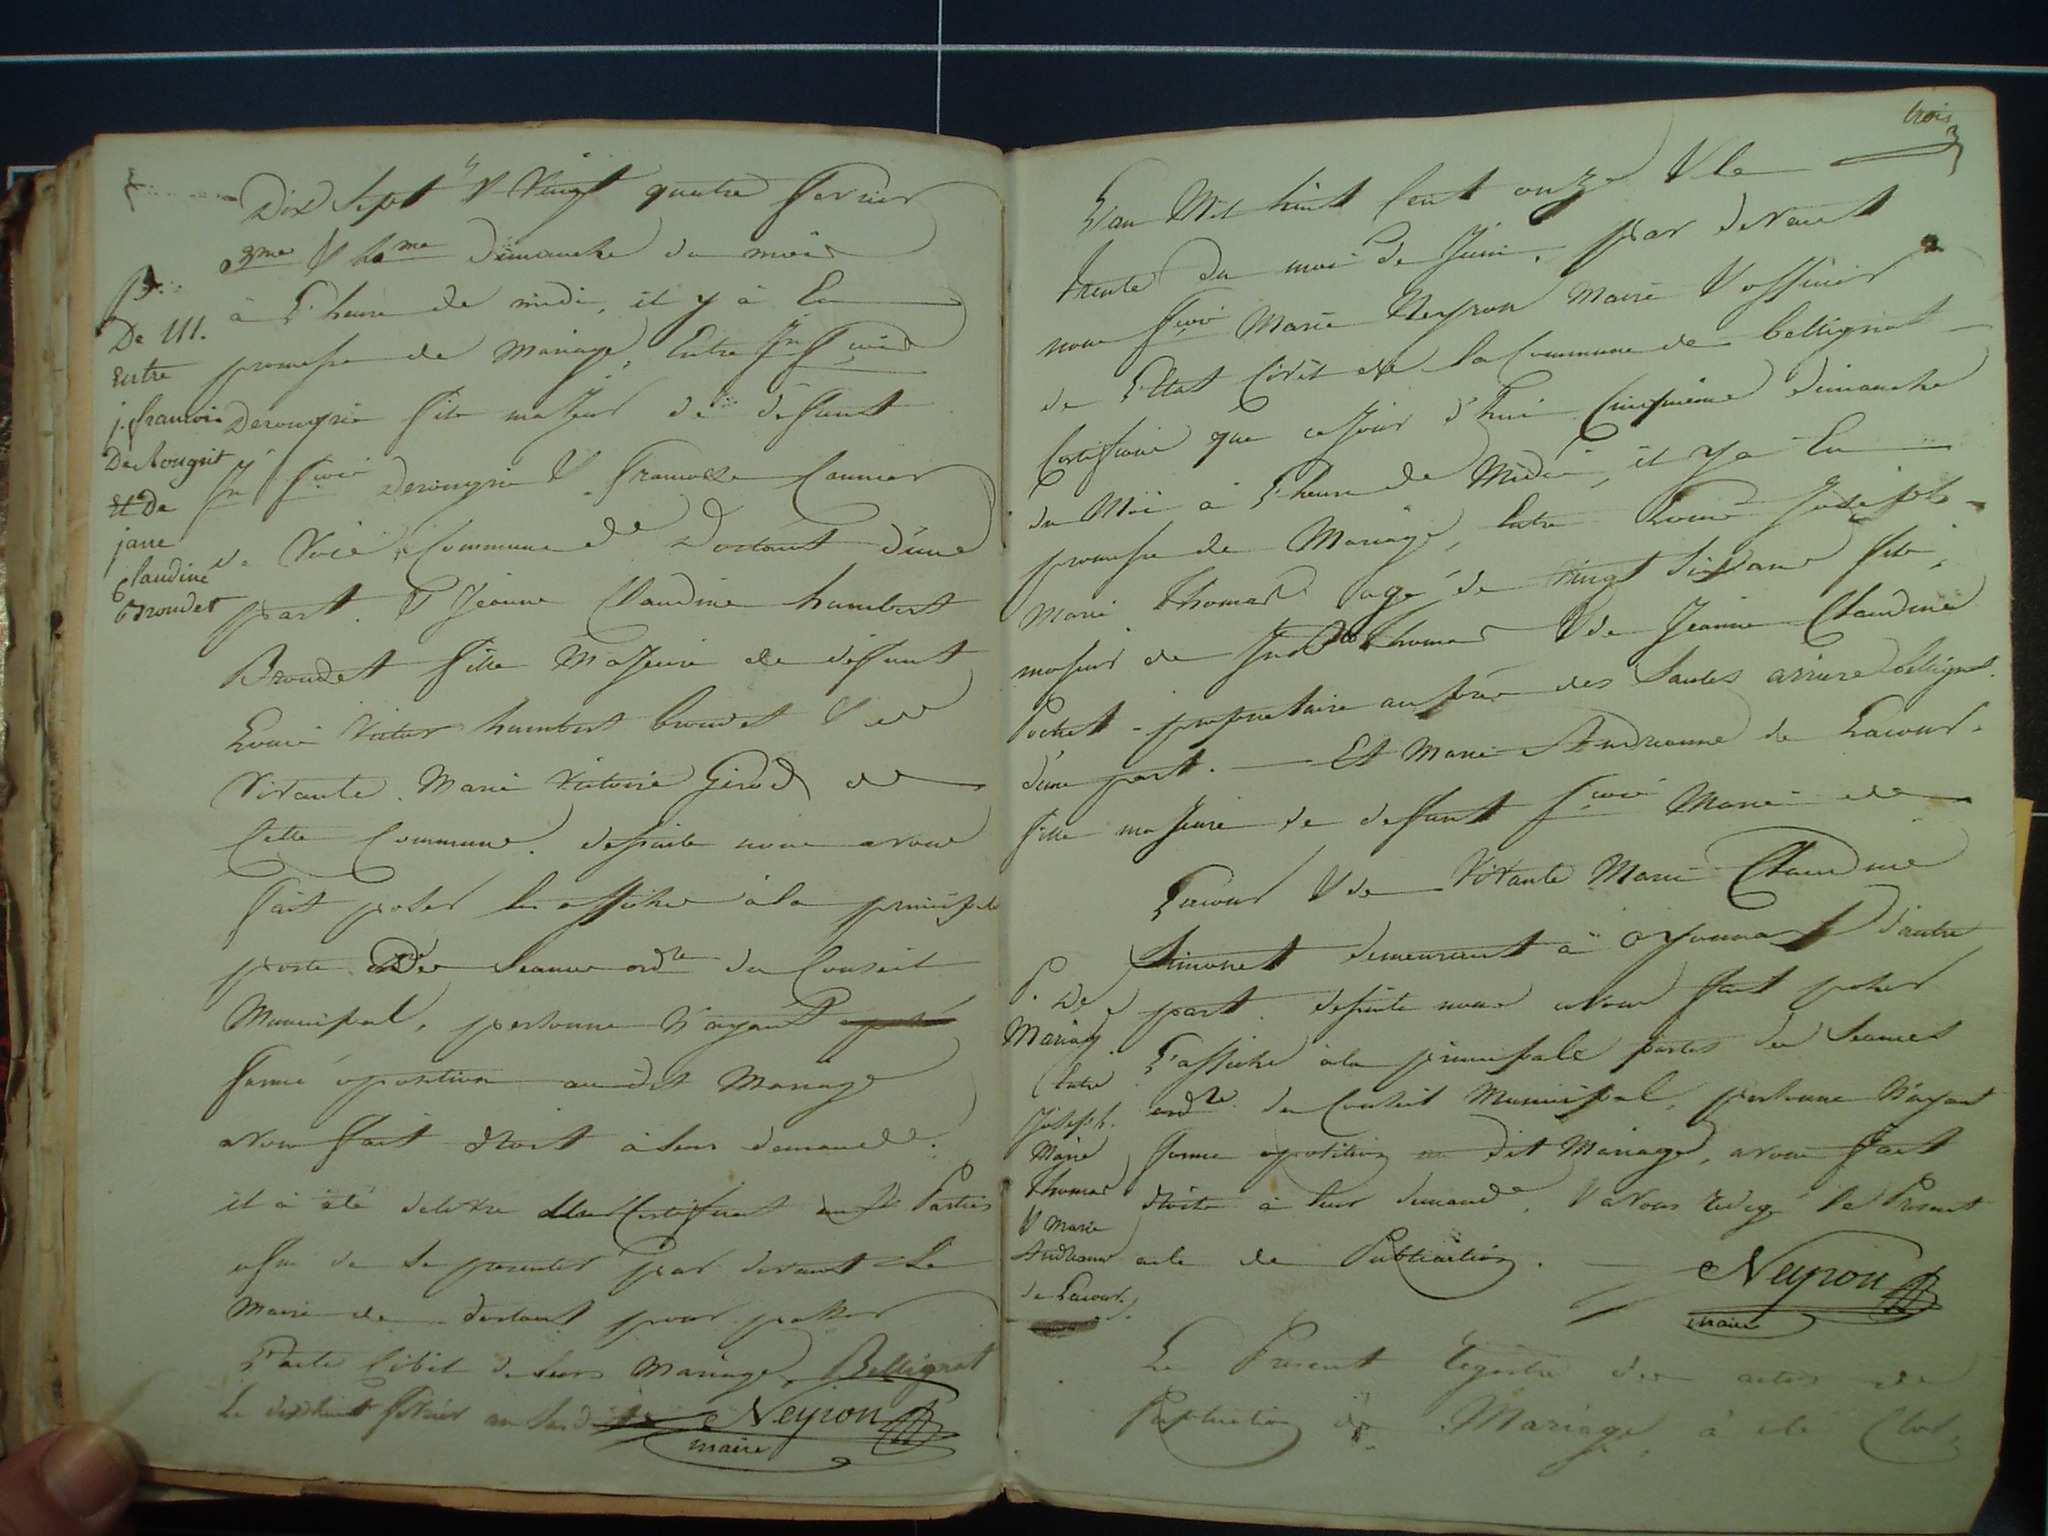 Dix Sept & Vingt quatre fevrier
3me & 4me dimanche du mois
à l'heure de midi, il y à Eu
promesse de Mariage, Entre Jn fçois
Derougrie fils majeur de défunt
Jn fçois Derougrie & francoise
de commune de Dortant d'une
part. & Jeanne Claudine humbert
Brondet fille Majeure de deffunt
Louis Victor humbert brondet & de
Vivante Marie Victoire Girod de
Cette Commune. desuite nous avons
fait poser les affiches à la principale
porte des Seances ordre du Conseil
Municipal, personne n'ayant
formé oposition au dit Mariage
avons fait droit à leur demande.
il à été delivré Certificat Parties
afin de se presenter par devant Le
Maire de dortant pour passer
L'acte Civil de leurs Mariage, Bellignat
Le dixhuit fevrier an susdit
Neyron
maire
De 111.
Entre
j. francois
Derougrit
Et De
jane
Claudine
Brondet
trois
3
L'an Mil huit Cent onze & le
trente du mois de Juin, par devant
nous fçois Marie Neyron Maire & officier
de l'Etat Civil de la Commune de bellignat
Certifions que cejour d'hui Cinquieme dimanche
du Mois à l'heure de Midi, il y à Eu
promesse de Mariage, Entre Louis Joseph
Marie Thomas agé de vingt six ans fils
majeur de Thomas & de Jeanne Claudine
Pochet proprietaire au pré des Saules arriere bellignat.
d'une part. Et Marie Andrianne de Lacour
fille majeure de defunt fçois Marie de
Lacour & de Vivante Marie Claudine
Simonet demeurant à oyonnax d'autre
part. desuite nous avons fait poser
L'affiche à la principale portes des Seances
ordre du Conseil Municipal, personne n'ayant
formé oposition au dit Mariage, avons fait
droite à leur demande, & avons redigé le Present
acte de Publication.
Neyron
maire
P. de
Mariag
Entre
Joseph
Marie
Thomas
& Marie
Andrianne
de Lacour
Le Present Registre des actes de
Publication de Mariage, à eté Clos,